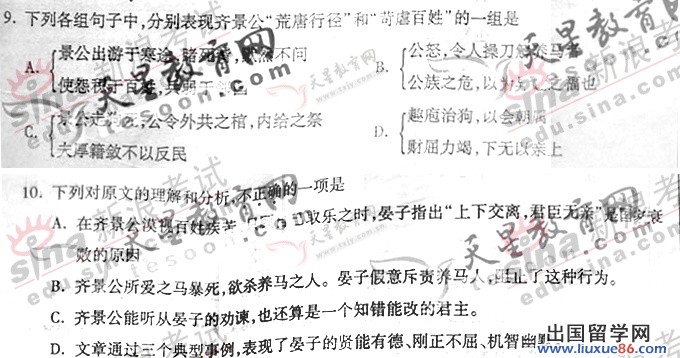 9. 下列各组句子中,分别表现齐景公“荒唐行径”和“苛虐百姓”的一组是
A. 景公出游于寒途,睹死胔,默然不问
使怨积于百姓,
B. 公怒,令人操刀解养马者
公族之危,以为
C. 景公走狗死,公令外共之棺,内给之祭
夫厚籍敛不以反民
D. 趣庖治狗,以会朝属
财屈力竭,下无以亲上
10. 下列对原文的理解和分析,不正确的一项是
A. 在齐景公漠视百姓疾苦 取乐之时,晏子指出“上下交离,君臣无亲”是国家衰
败的原因
B. 齐景公所爱之马暴死,欲杀养马之人。晏子假意斥责养马人,阻止了这种行为。
C. 齐景公能听从晏子的劝谏,也还算是一个知错能改的君主。
D. 文章通过三个典型事例,表现了晏子的贤能有德、刚正不屈、机智幽默
天星教育网
tesoon.com
天星教育网
sina 新浪考试
edu.sina.com.cn
出国留学网
www.liuxue86.com